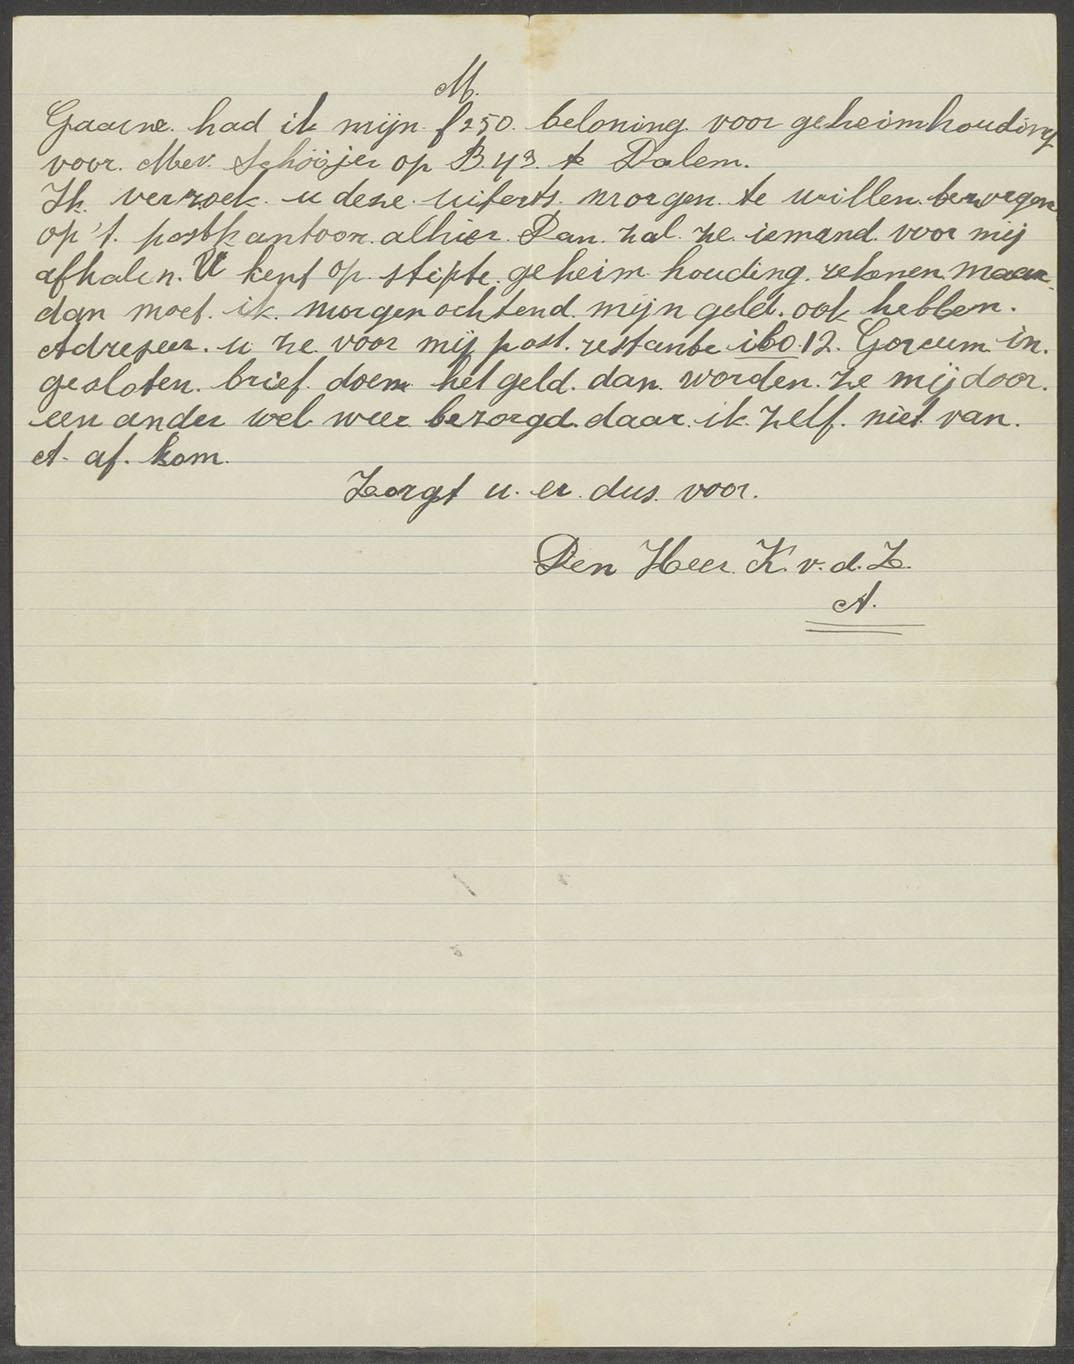 M.
Gaarne. had ik mijn f 250. beloning. voor geheimhouding
voor. Mev. Schooijer op B 43 te Dalem.
Ik. verzoek. u deze. uiterts. morgen. te willen. bezorgen
op 't. postkantoor. alhier. Dan. zal. ze. iemand. voor mij
afhalen. U kent op. stipte. geheim houding. rekenen maar.
dan moet. ik. morgen ochtend. mijn geld. ook hebben.
Adreseer. u ze. voor mij post. restante ibo. 12. Gorcum in.
gesloten. brief. doen het geld. dan. worden. ze mij door.
een ander wel weer bezorgd. daar. ik. zelf. niet van.
A. af. kom.
Zorgt u. er. dus. voor.
Den Heer. K. v. d. Z.
A.